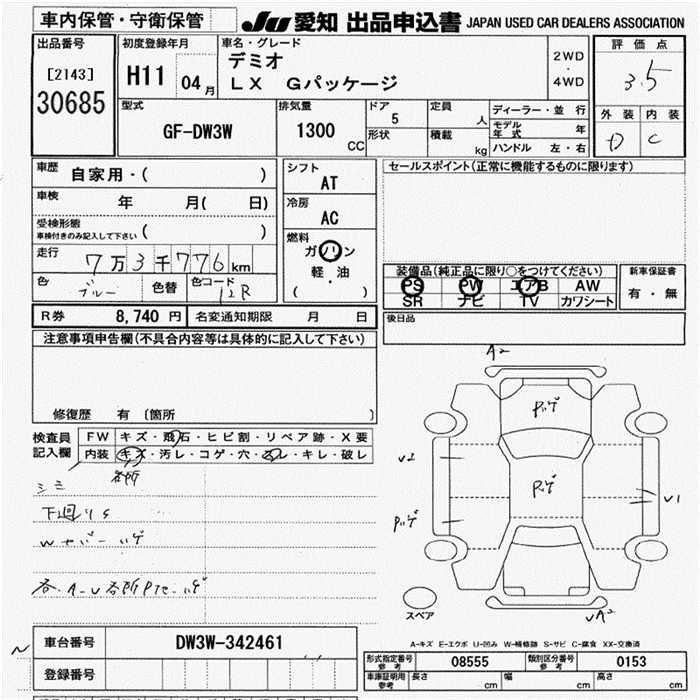 車内保管・守衛保管
JU 愛知 出品申込書 JAPAN USED CAR DEALERS ASSOCIATION
出品番号
[2143]
30685
初度登録年月
H11 04月
車名・グレード
デミオ
LX Gパッケージ
2WD
・
4WD
評価点
3.5
外装 内装
D C
型式
GF-DW3W
排気量
1300 CC
ドア
5
形状
定員
人
積載
kg
ディーラー・並行
モデル年式 年
ハンドル 左・右
車歴
自家用・( )
車検
年 月( 日)
受検形態
車検付きのみ記入して下さい ( )
走行
7万3千776km
色
ブルー
色替
色コード
12R
シフト
AT
冷房
AC
燃料
ガソリン
軽・油
( )
セールスポイント(正常に機能するものに限ります)
装備品(純正品に限り○をつけてください)
PS PW エアB AW
SR ナビ TV カワシート
新車保証書
有・無
後日品
R券 8,740円 名変通知期限 月 日
注意事項申告欄(不具合内容等は具体的に記入して下さい)
修復歴 有 〔箇所 〕
検査員記入欄
FW キズ・飛石・ヒビ割・リペア跡・X要
内装 キズ・汚レ・コゲ・穴・スレ・キレ・破レ
各所
シミ
下廻りS
Wカバーハゲ
各.A-U各所Pハゲ
A2
Pハゲ
V2
Pハゲ
Pハゲ
V1
VA2
スペア
A-キズ E-エクボ U-凹み W-補修跡 S-サビ C-腐食 XX-交換済
車台番号 DW3W-342461
登録番号
形式指定番号 参考 08555 類別区分番号 参考 0153
車庫証明用 参考 長さ cm 幅 cm 高さ cm